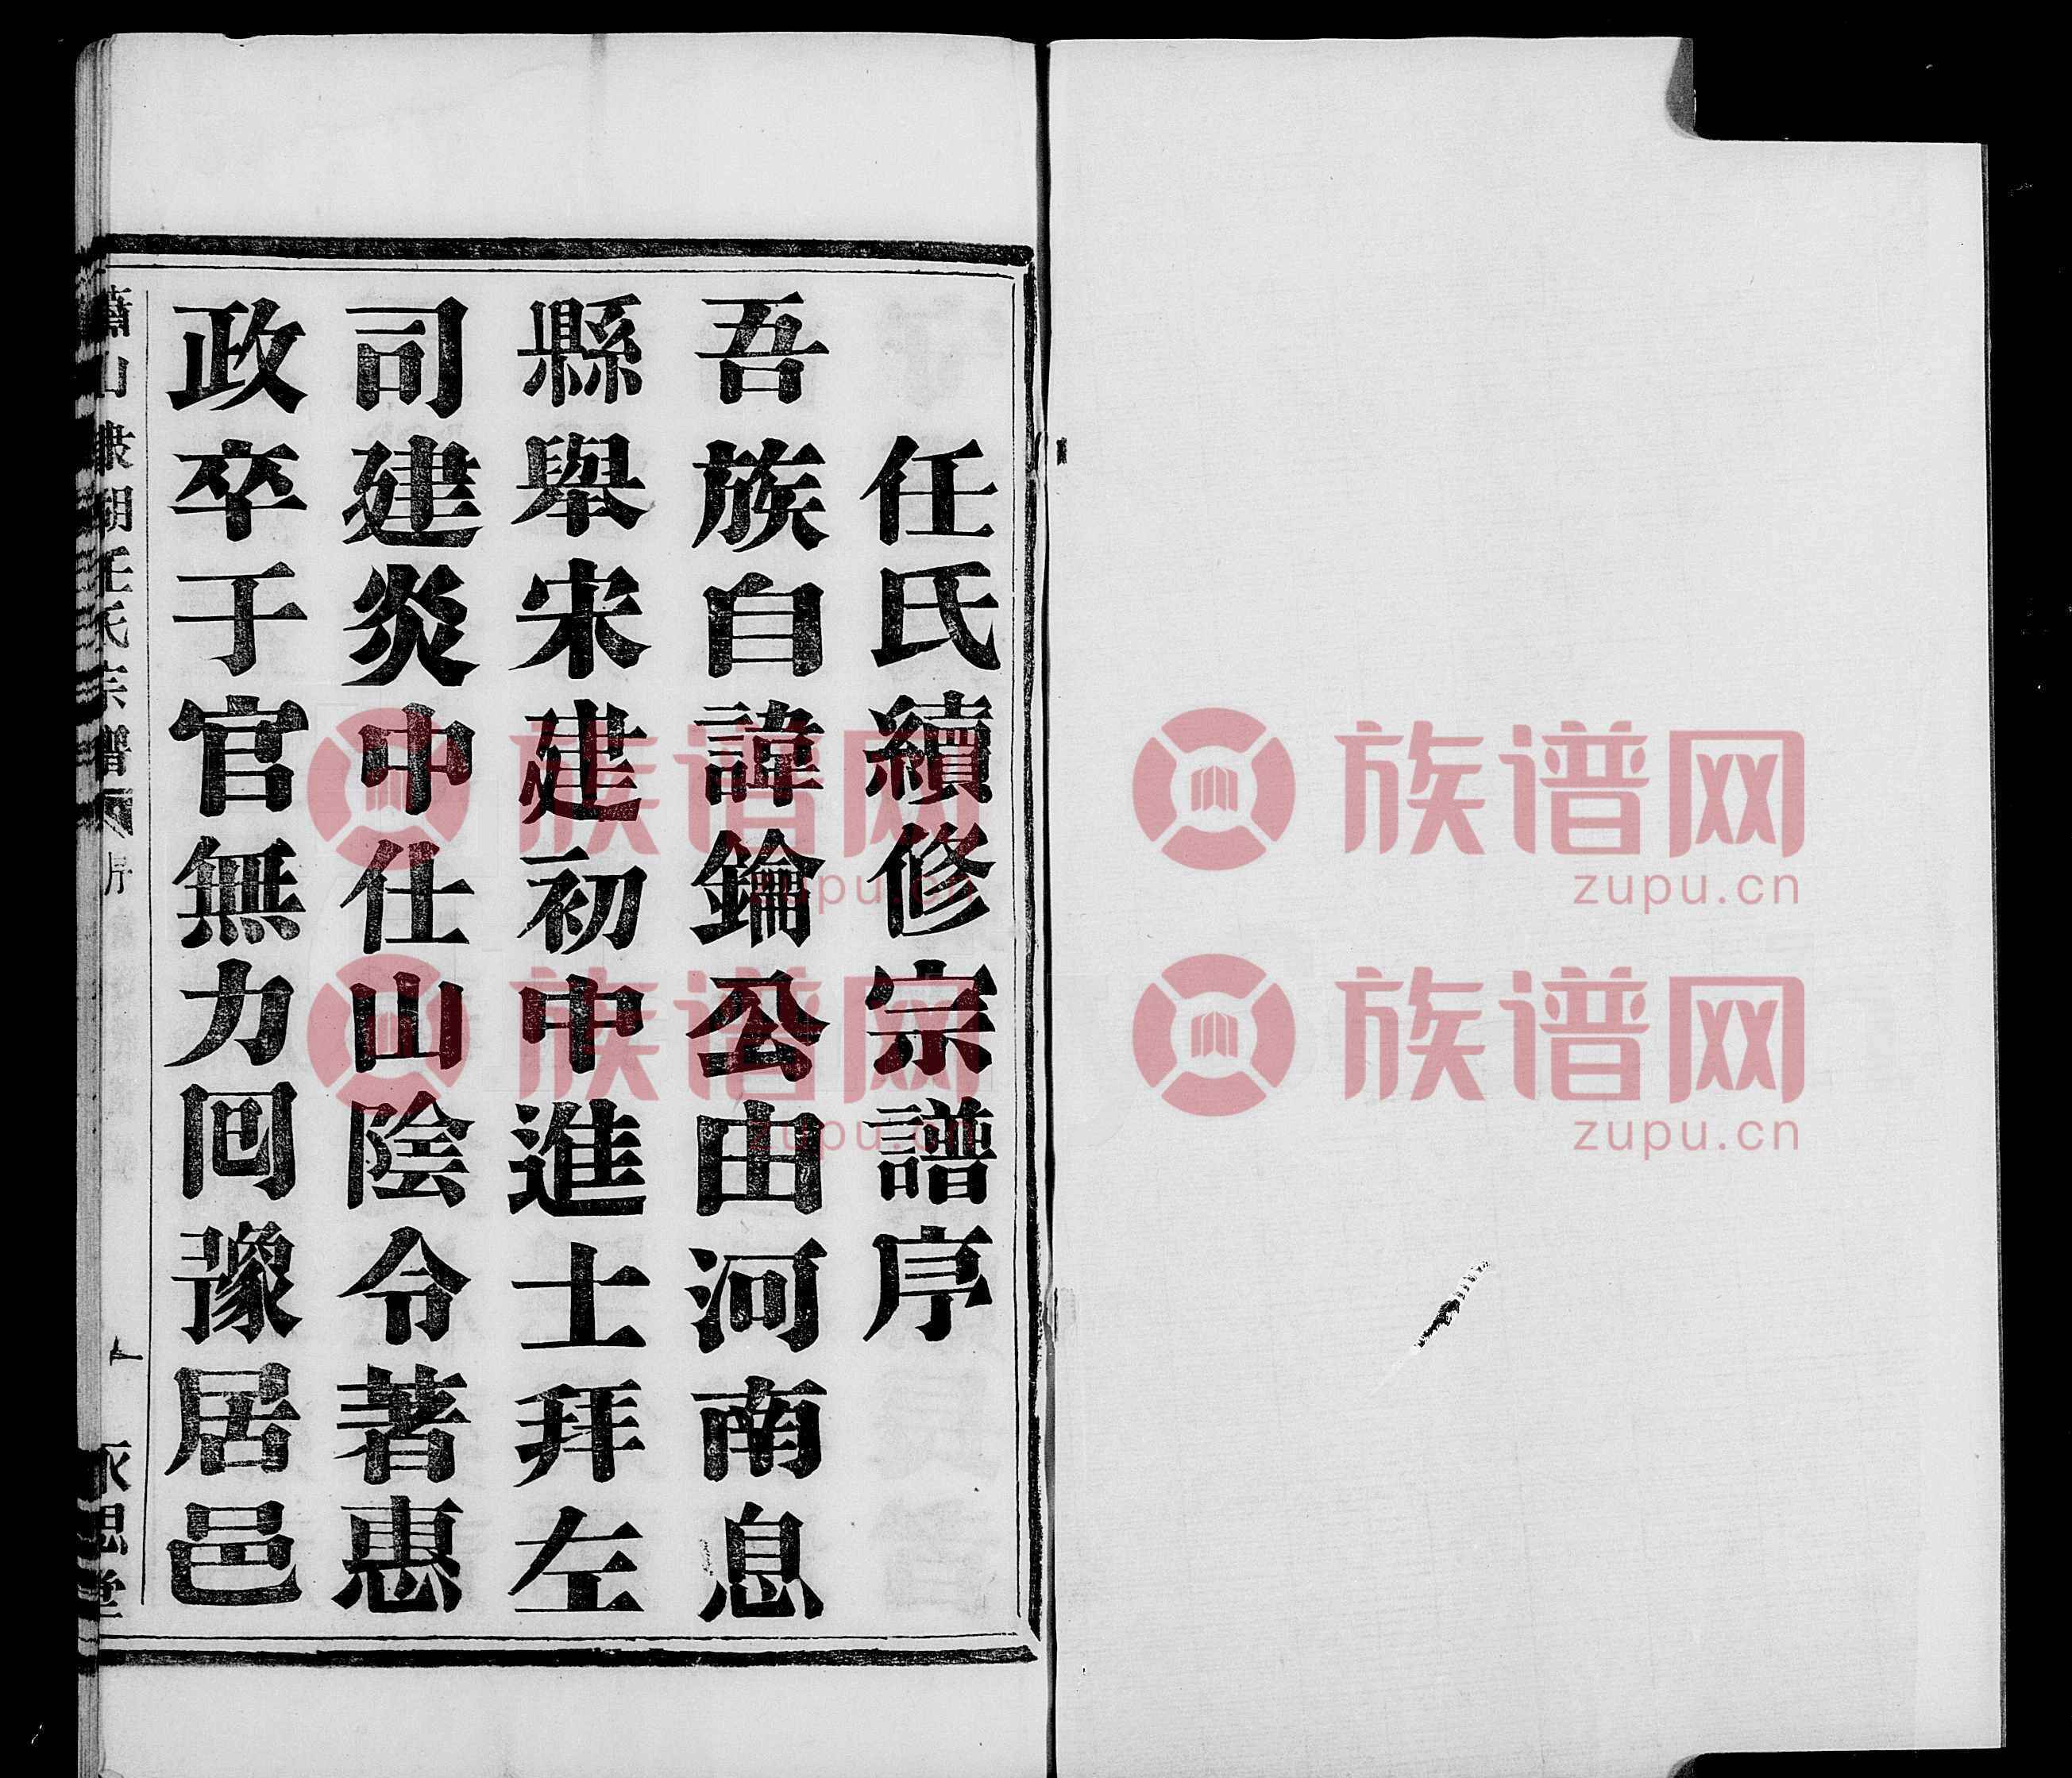 任氏續修宗譜序
吾族自諱鑰公由河南息
縣舉宋建初中進士拜左
司建炎中仕山陰令著惠
政卒于官無力回豫居邑
蕭山 湖任氏宗譜 序
永思堂
族谱网
zupu.cn
族谱网
zupu.cn
族谱网
zupu.cn
族谱网
zupu.cn